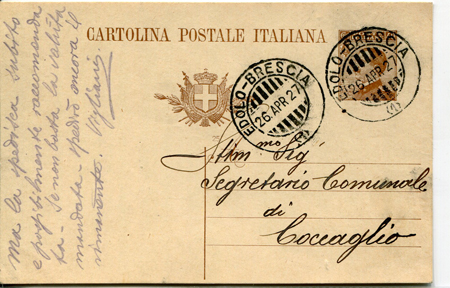 CARTOLINA POSTALE ITALIANA
EDOLO-BRESCIA
26.APR.27
EDOLO-BRESCIA
26.APR.27
Stim.mo Sig
Segretario Comunale
di
Coccaglio
Ma la spedisca subito
e possibilmente raccomanda
ta - Se non basta la valuta
mandata - spedirò ancora il
rimanente.